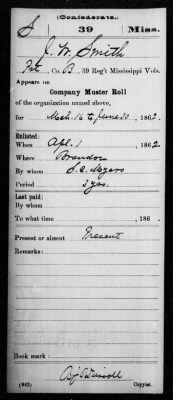 (Confederate.)
S 39 Miss.
J. W. Smith
Pvt, Co. B, 39 Reg't Mississippi Vols.
Appears on
Company Muster Roll
of the organization named above,
for Mch. 16 to June 30, 1862.
Enlisted:
When Apl. 1, 1862.
Where Brandon
By whom S. C. Myers
Period 3 yrs.
Last paid:
By whom
To what time , 186 .
Present or absent Present
Remarks:
Book mark:
(642) Copyist.